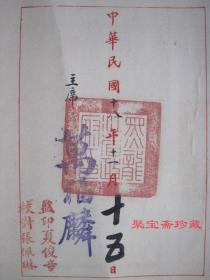 中華民國十八年十一月十五日
主席
萬福麟
監印夏俊峯
校對張佩琳
聚宝斋珍藏